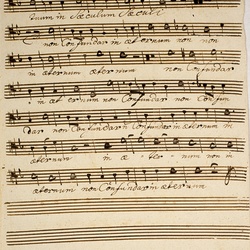 tuum in Sæculum Sæculi
non Confundar in æternum non non
in æternum æternum non Confundar
in æternum non Confundar non Confun
dar non Confundar in æternum in
æternum in æ- ter- num non in
æternum non Confundar in æternum